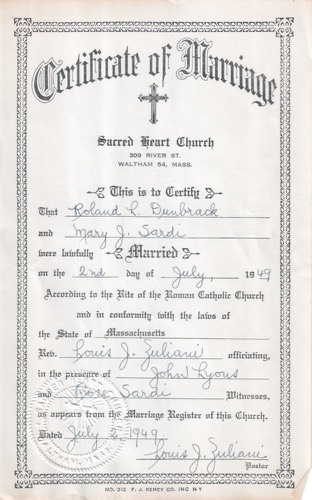 Certificate of Marriage
Sacred Heart Church
309 RIVER ST.
WALTHAM 54, MASS.
This is to Certify
That Roland L. Dunbrack
and Mary J. Sardi
were lawfully Married
on the 2nd day of July, 1949
According to the Rite of the Roman Catholic Church
and in conformity with the laws of
the State of Massachusetts
Rev. Louis J. Giuliani officiating,
in the presence of John Lyons
and Sardi Witnesses,
as appears from the Marriage Register of this Church.
Dated July 2, 1949
Louis J. Giuliani
Pastor
NO. 212 F. J. REMEY CO. INC N Y